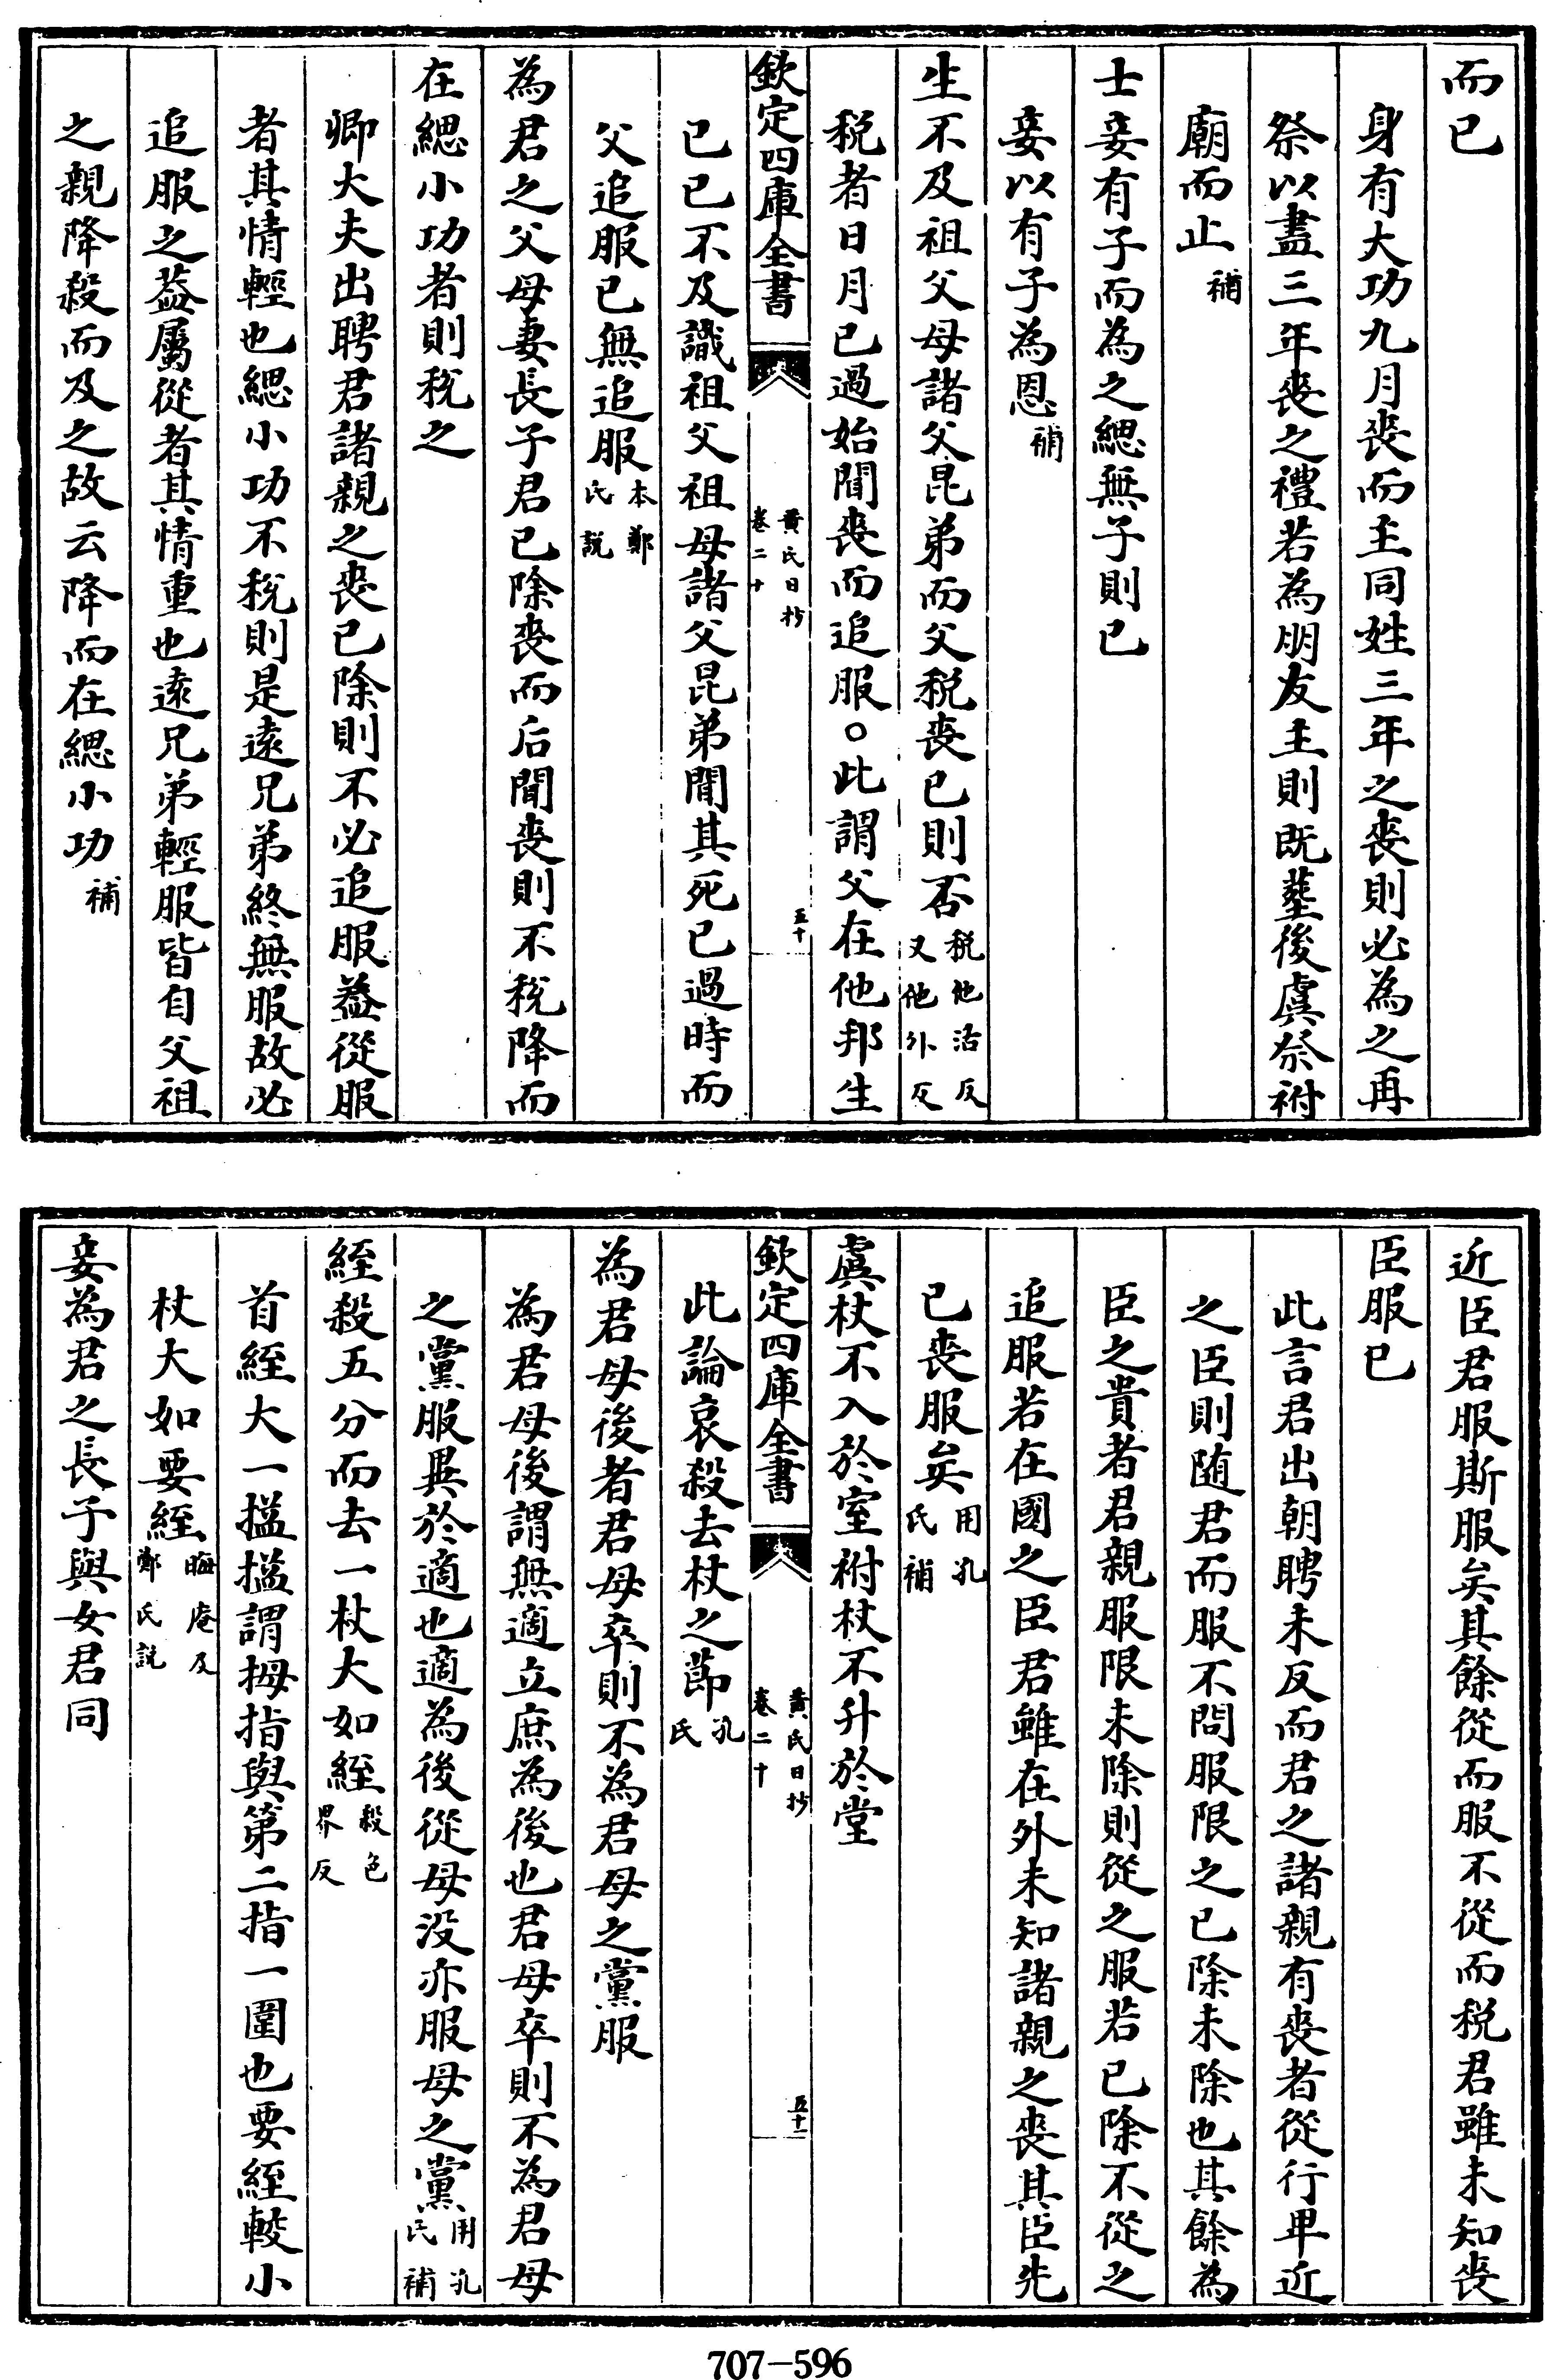 而已
身有大功九月喪而主同姓三年之喪則必為之再
祭以盡三年喪之禮若為朋友主則既塟後虞祭祔
廟而止補
士妾有子而為之緦無子則已
妾以有子為恩補
生不及祖父母諸父昆弟而父税喪已則否税他活反又他外反
税者日月已過始聞喪而追服○此謂父在他邦生
欽定四庫全書 黄氏日抄卷二十 五十
已已不及識祖父祖母諸父昆弟聞其死已過時而
父追服已無追服本鄭氏説
為君之父母妻長子君已除喪而后聞喪則不税降而
在緦小功者則税之
卿大夫出聘君諸親之喪已除則不必追服葢從服
者其情輕也緦小功不税則是遠兄弟終無服故必
追服之葢屬從者其情重也遠兄弟輕服皆自父祖
之親降殺而及之故云降而在緦小功補
近臣君服斯服矣其餘從而服不從而税君雖未知喪
臣服已
此言君出朝聘未反而君之諸親有喪者從行卑近
之臣則随君而服不問服限之已除未除也其餘為
臣之貴者君親服限未除則從之服若已除不從之
追服若在國之臣君雖在外未知諸親之喪其臣先
已喪服矣用孔氏補
虞杖不入於室祔杖不升於堂
欽定四庫全書 黄氏日抄卷二十 五十一
此論哀殺去杖之節孔氏
為君母後者君母卒則不為君母之黨服
為君母後謂無適立庶為後也君母卒則不為君母
之黨服異於適也適為後從母没亦服母之黨用孔氏補
絰殺五分而去一杖大如絰殺色界反
首絰大一搵搵謂拇指與第二指一圍也要絰較小
杖大如要絰晦庵及鄭氏説
妾為君之長子與女君同
707-596